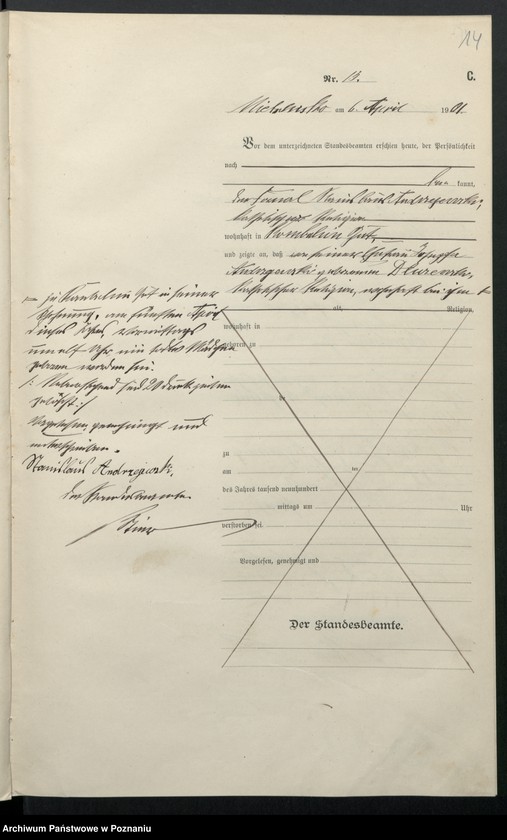 14
Nr. 14.
C.
am 6. April 1901.
Vor dem unterzeichneten Standesbeamten erschien heute, der Persönlichkeit
nach
kannt,
der Stanislaus Andrzejewski,
katholischer Religion
wohnhaft in Gut,
und zeigte an, daß von seiner Ehefrau Josepha
Andrzejewski geborenen
katholischer Religion, wohnhaft bei ihm
alt, Religion,
wohnhaft in
geboren zu
zu Gut in seiner
Wohnung, am fünften April
dieses Jahres Vormittags
um elf Uhr ein todtes Mädchen
geboren worden sei.
Vorgelesen, genehmigt und
unterschrieben.
Stanislaus Andrzejewski.
Der Standesbeamte.
zu
am
des Jahres tausend neunhundert
mittags um Uhr
verstorben sei.
Vorgelesen, genehmigt und
Der Standesbeamte.
Archiwum Państwowe w Poznaniu